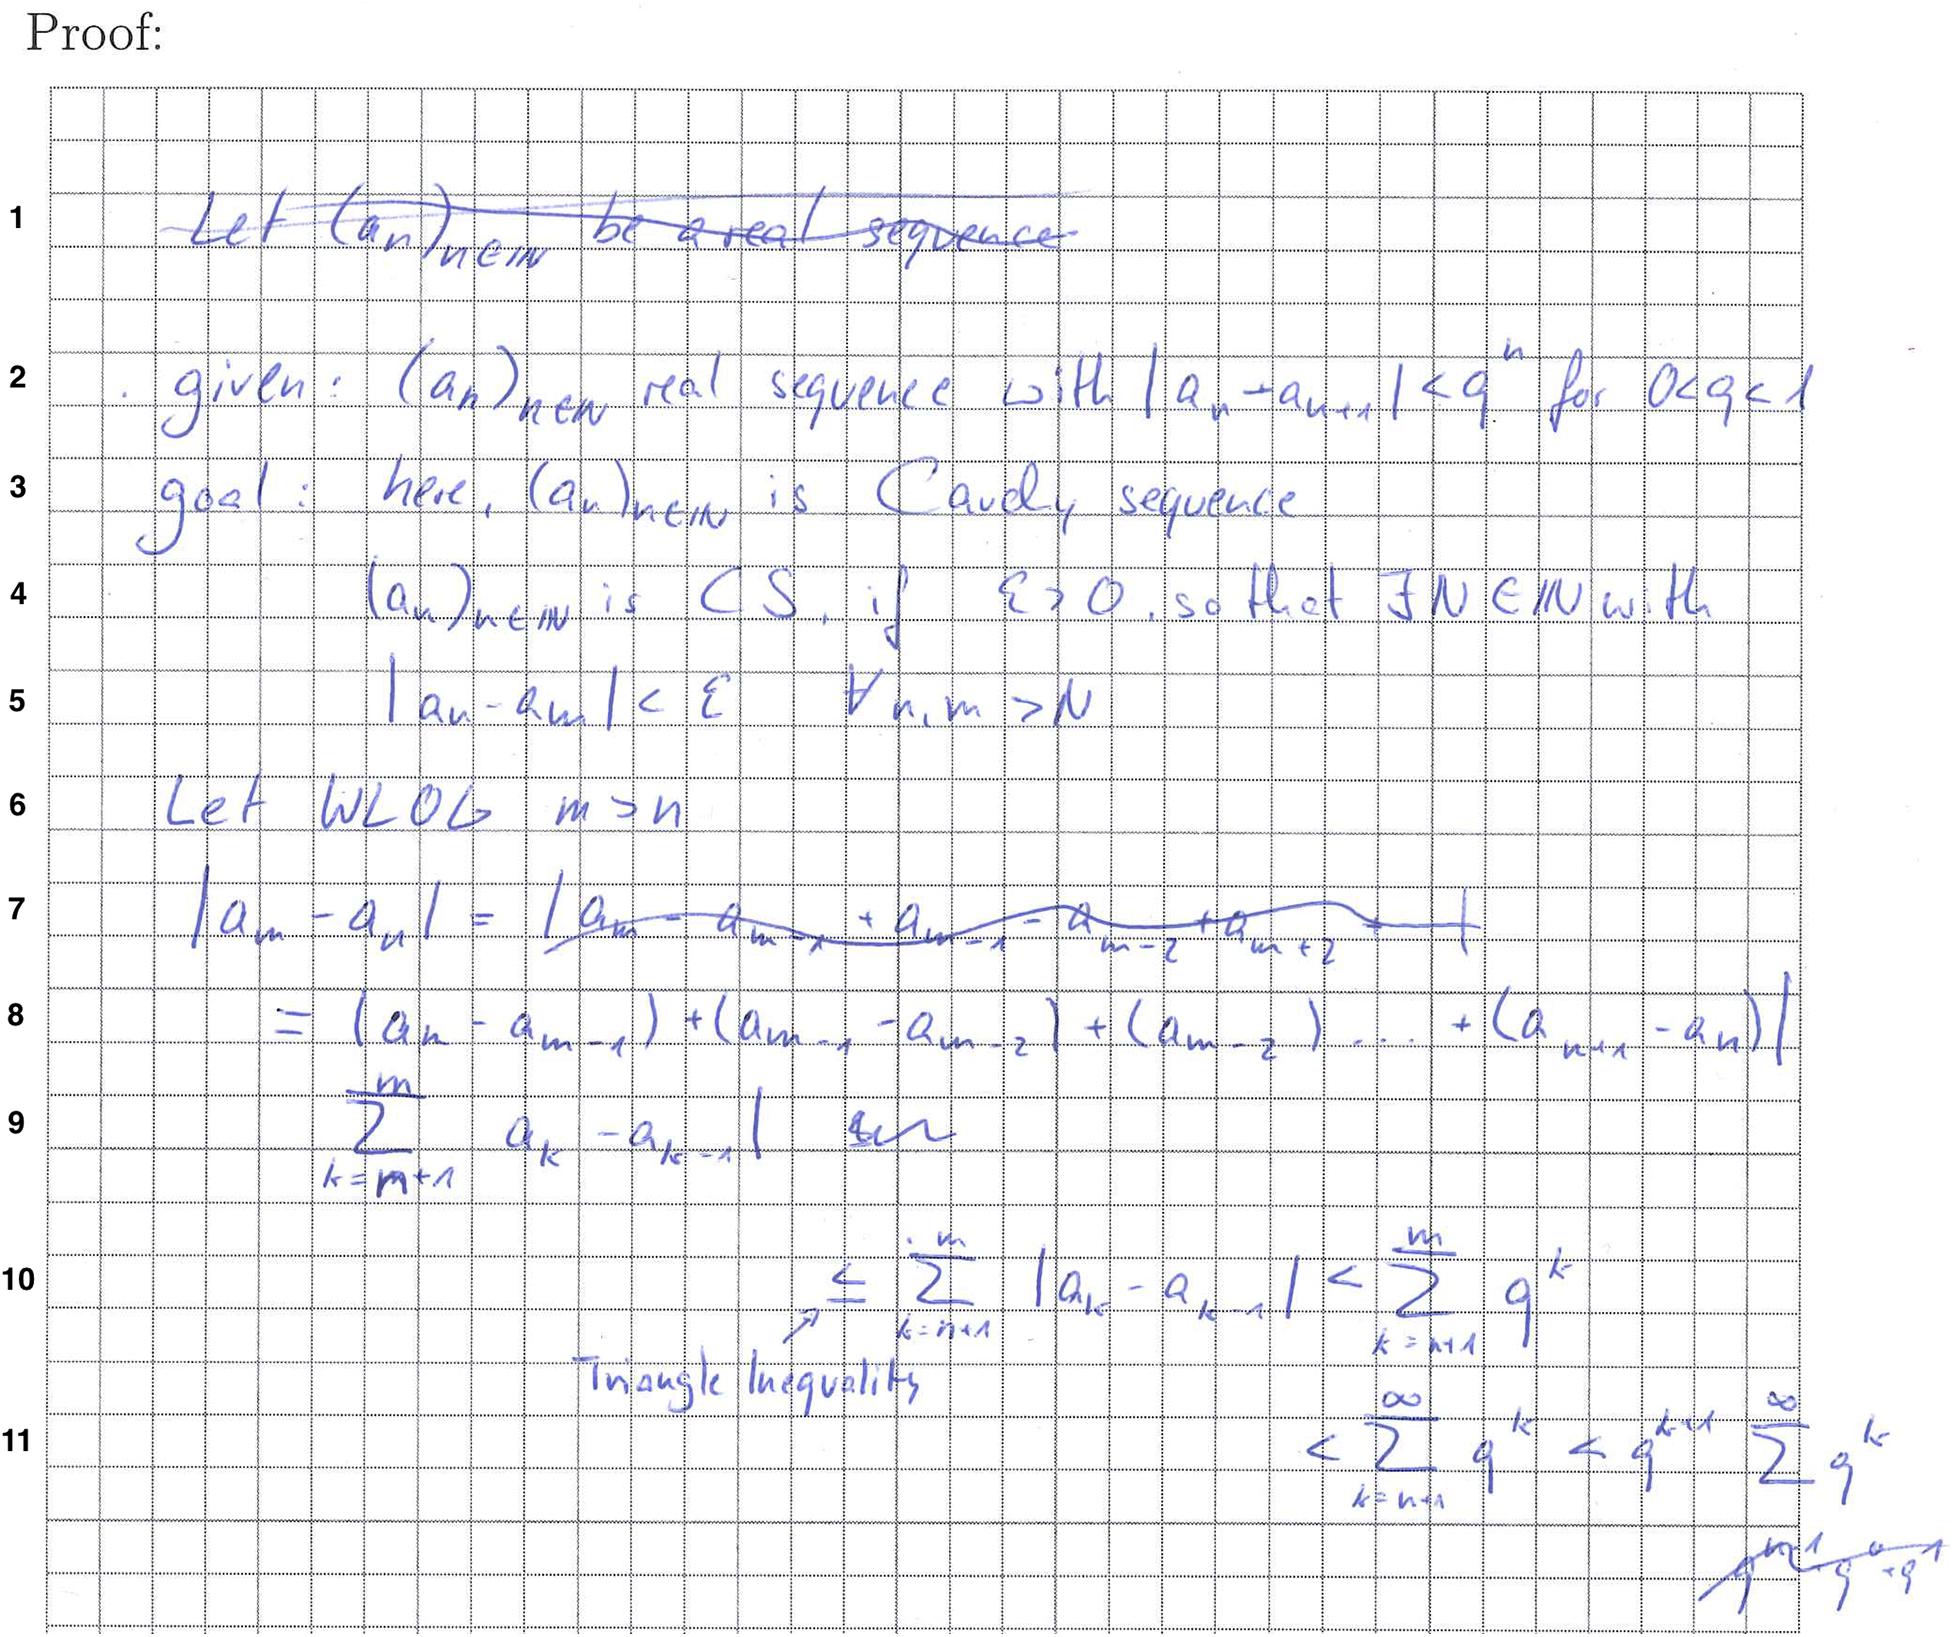 Proof:
1 Let (aₙ)ₙ∈ℕ be a real sequence
2 given: (aₙ)ₙ∈ℕ real sequence with |aₙ - aₙ₊₁| < qⁿ for 0<q<1
3 goal: here, (aₙ)ₙ∈ℕ is Cauchy sequence
4 (aₙ)ₙ∈ℕ is CS, if ε>0, so that ∃N∈ℕ with
5 |aₙ - aₘ| < ε ∀n,m > N
6 Let WLOG m>n
7 |aₘ - aₙ| = |aₘ - aₘ₋₁ + aₘ₋₁ - aₘ₋₂ + aₘ₊₂ - |
8 = (aₘ - aₘ₋₁) + (aₘ₋₁ - aₘ₋₂) + (aₘ₋₂ ) .... + (aₙ₊₁ - aₙ)|
9 ∑_{k=m+1}^{m} a_k - a_{k-1}|
10 ≤ ∑_{k=n+1}^{m} |a_k - a_{k-1}| < ∑_{k=n+1}^{m} q^k
Triangle Inequality
11 < ∑_{k=n+1}^{∞} q^k < q^{k+1} ∑^{∞} q^k